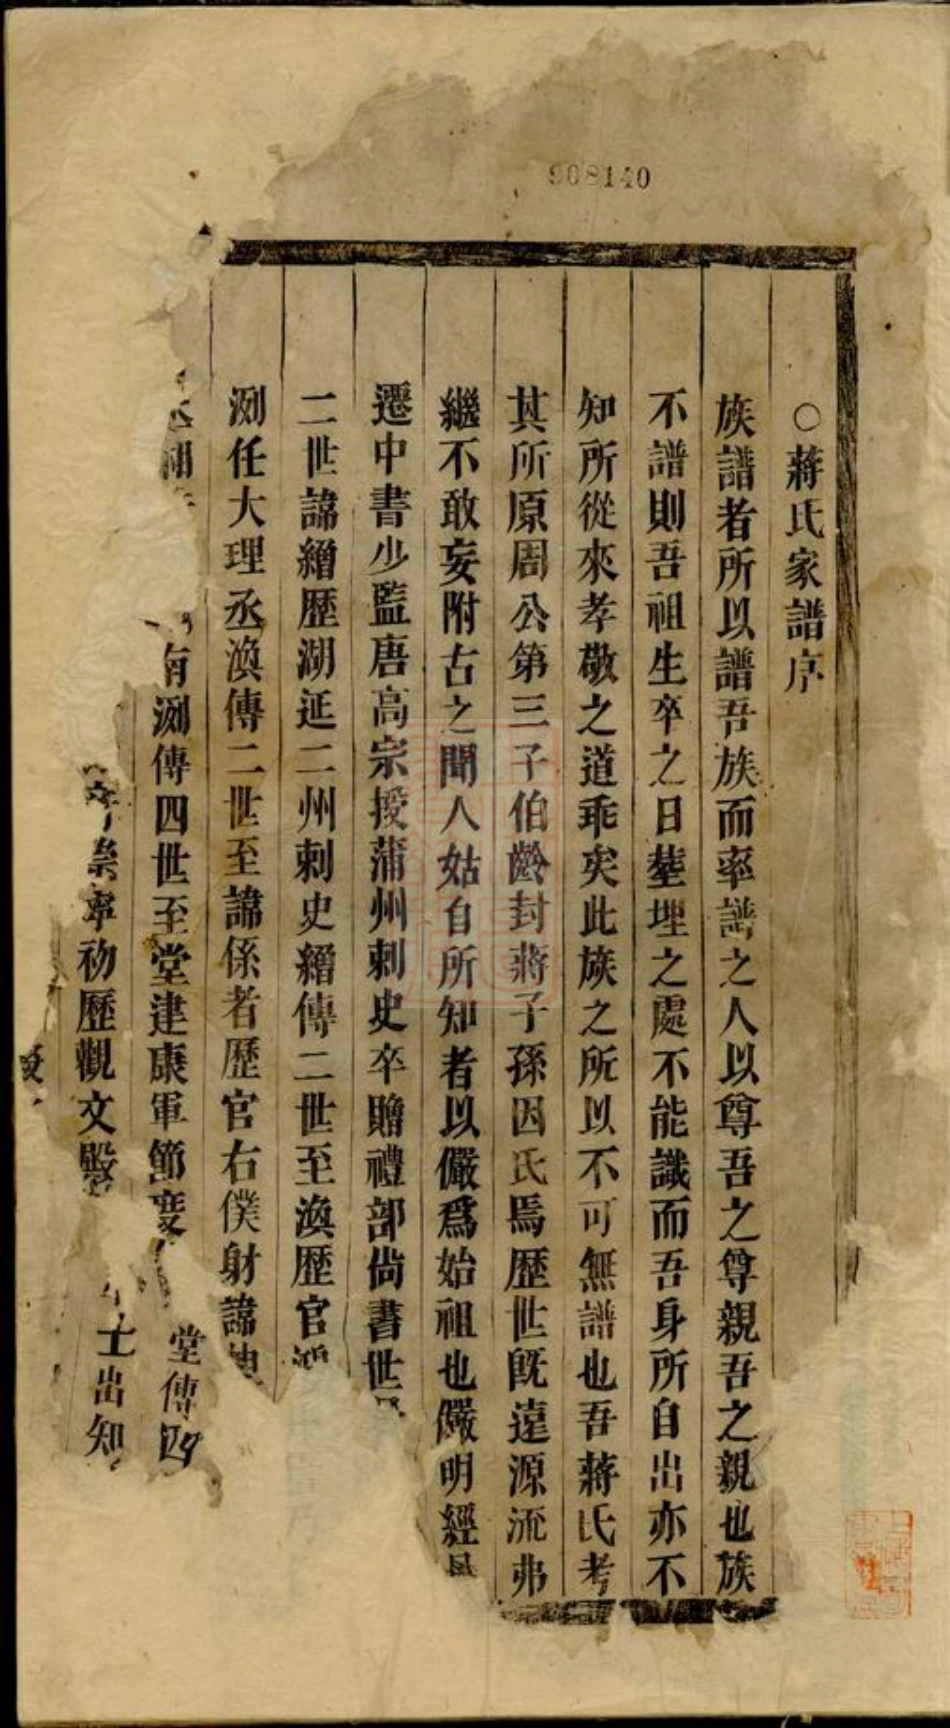 908140
○蔣氏家譜序
族譜者所以譜吾族而率譜之人以尊吾之尊親吾之親也族
不譜則吾祖生卒之日塟埋之處不能識而吾身所自出亦不
知所從來孝敬之道乖矣此族之所以不可無譜也吾蔣氏考
其所原周公第三子伯齡封蔣子孫因氏焉歷世既遠源流弗
繼不敢妄附古之聞人姑自所知者以儼爲始祖也儼明經
遷中書少監唐高宗授蒲州刺史卒贈禮部尙書世
二世諱繒歷湖延二州刺史繒傳二世至渙歷官
洌任大理丞渙傳二世至諱係者歷官右僕射諱
洌傳四世至堂建康軍節度 堂傳四
崇寧初歷觀文 士出知